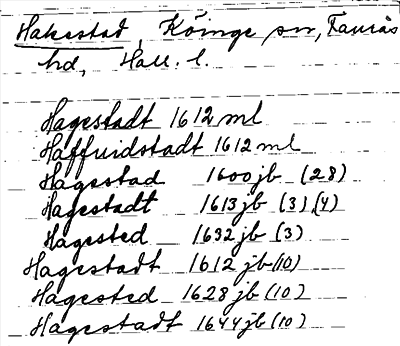 Hakestad, Köinge sn, Faurås
hd, Hall. l.
Hagestadt 1612 ml
Haffuidstadt 1612 ml
Hagestad 1600 jb (28)
Hagestadt 1613 jb (3) (4)
Hagested 1632 jb (3)
Hagestadt 1612 jb (10)
Hagested 1628 jb (10)
Hagestadt 1644 jb (10)